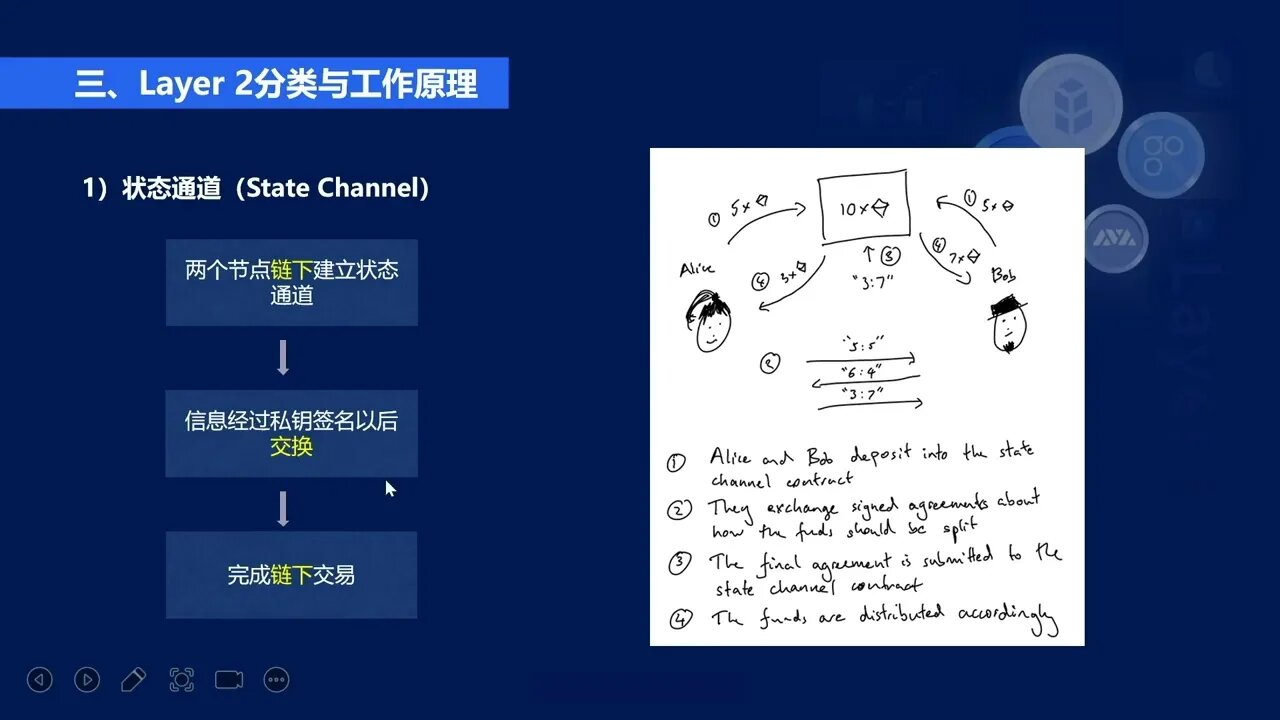 三、Layer 2分类与工作原理
1）状态通道（State Channel）
两个节点链下建立状态
通道
信息经过私钥签名以后
交换
完成链下交易
① 5x
10x
① 5x
Alice
④ 3x
③
"3:7"
④ 7x
Bob
②
"5:5"
"6:4"
"3:7"
① Alice and Bob deposit into the state
channel contract
② They exchange signed agreements about
how the funds should be split
③ The final agreement is submitted to the
state channel contract
④ The funds are distributed accordingly
Laye